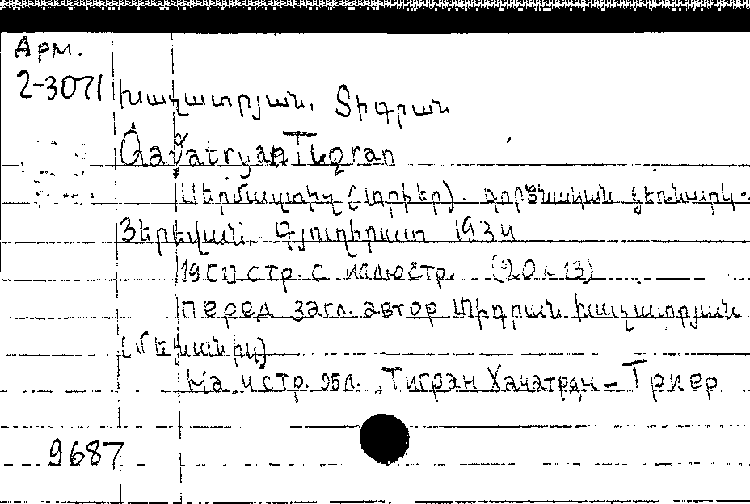 Арм.
2-3071
Խաչատրյան. Տիգրան
Xačatryan Tigran
Սերմազտիչ (տրիեր). գործնական ձեռնարկ-
Յերեվան, Գյուղհրատ 1934
19 стр. с иллюстр. (20×13)
перед загл. автор Տիգրան Խաչատրյան
(մեխանիկ)
На стр. обл. Тигран Хачатрян - Триер
9687